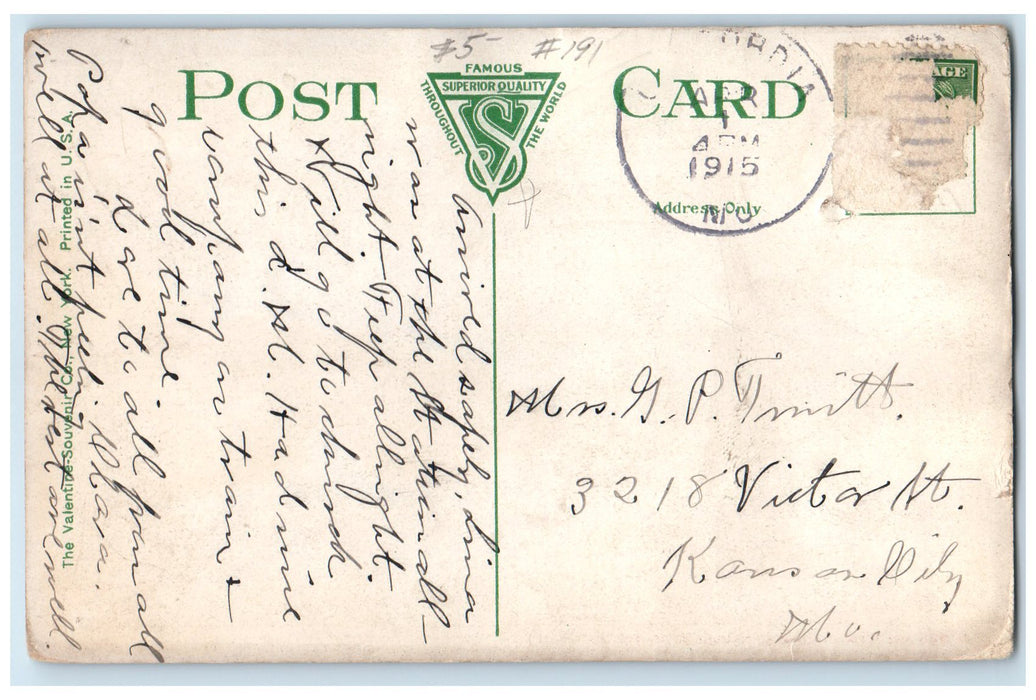 $5- #191
POST CARD
FAMOUS
SUPERIOR QUALITY
THROUGHOUT THE WORLD
VS
APR
1
4 PM
1915
MO
AGE
Address Only
Arrived safely, Lina
was at the Station all-
right. Feep allright.
Will go to church
this P.M. Had nice
company on train +
good time.
Love to all from all
Papa isn't feeling
well at all. The rest are well.
Clara.
Mrs. G. P. Truitt.
3218 Victor St.
Kansas City
Mo.
The Valentine-Souvenir Co., New York. Printed in U.S.A.